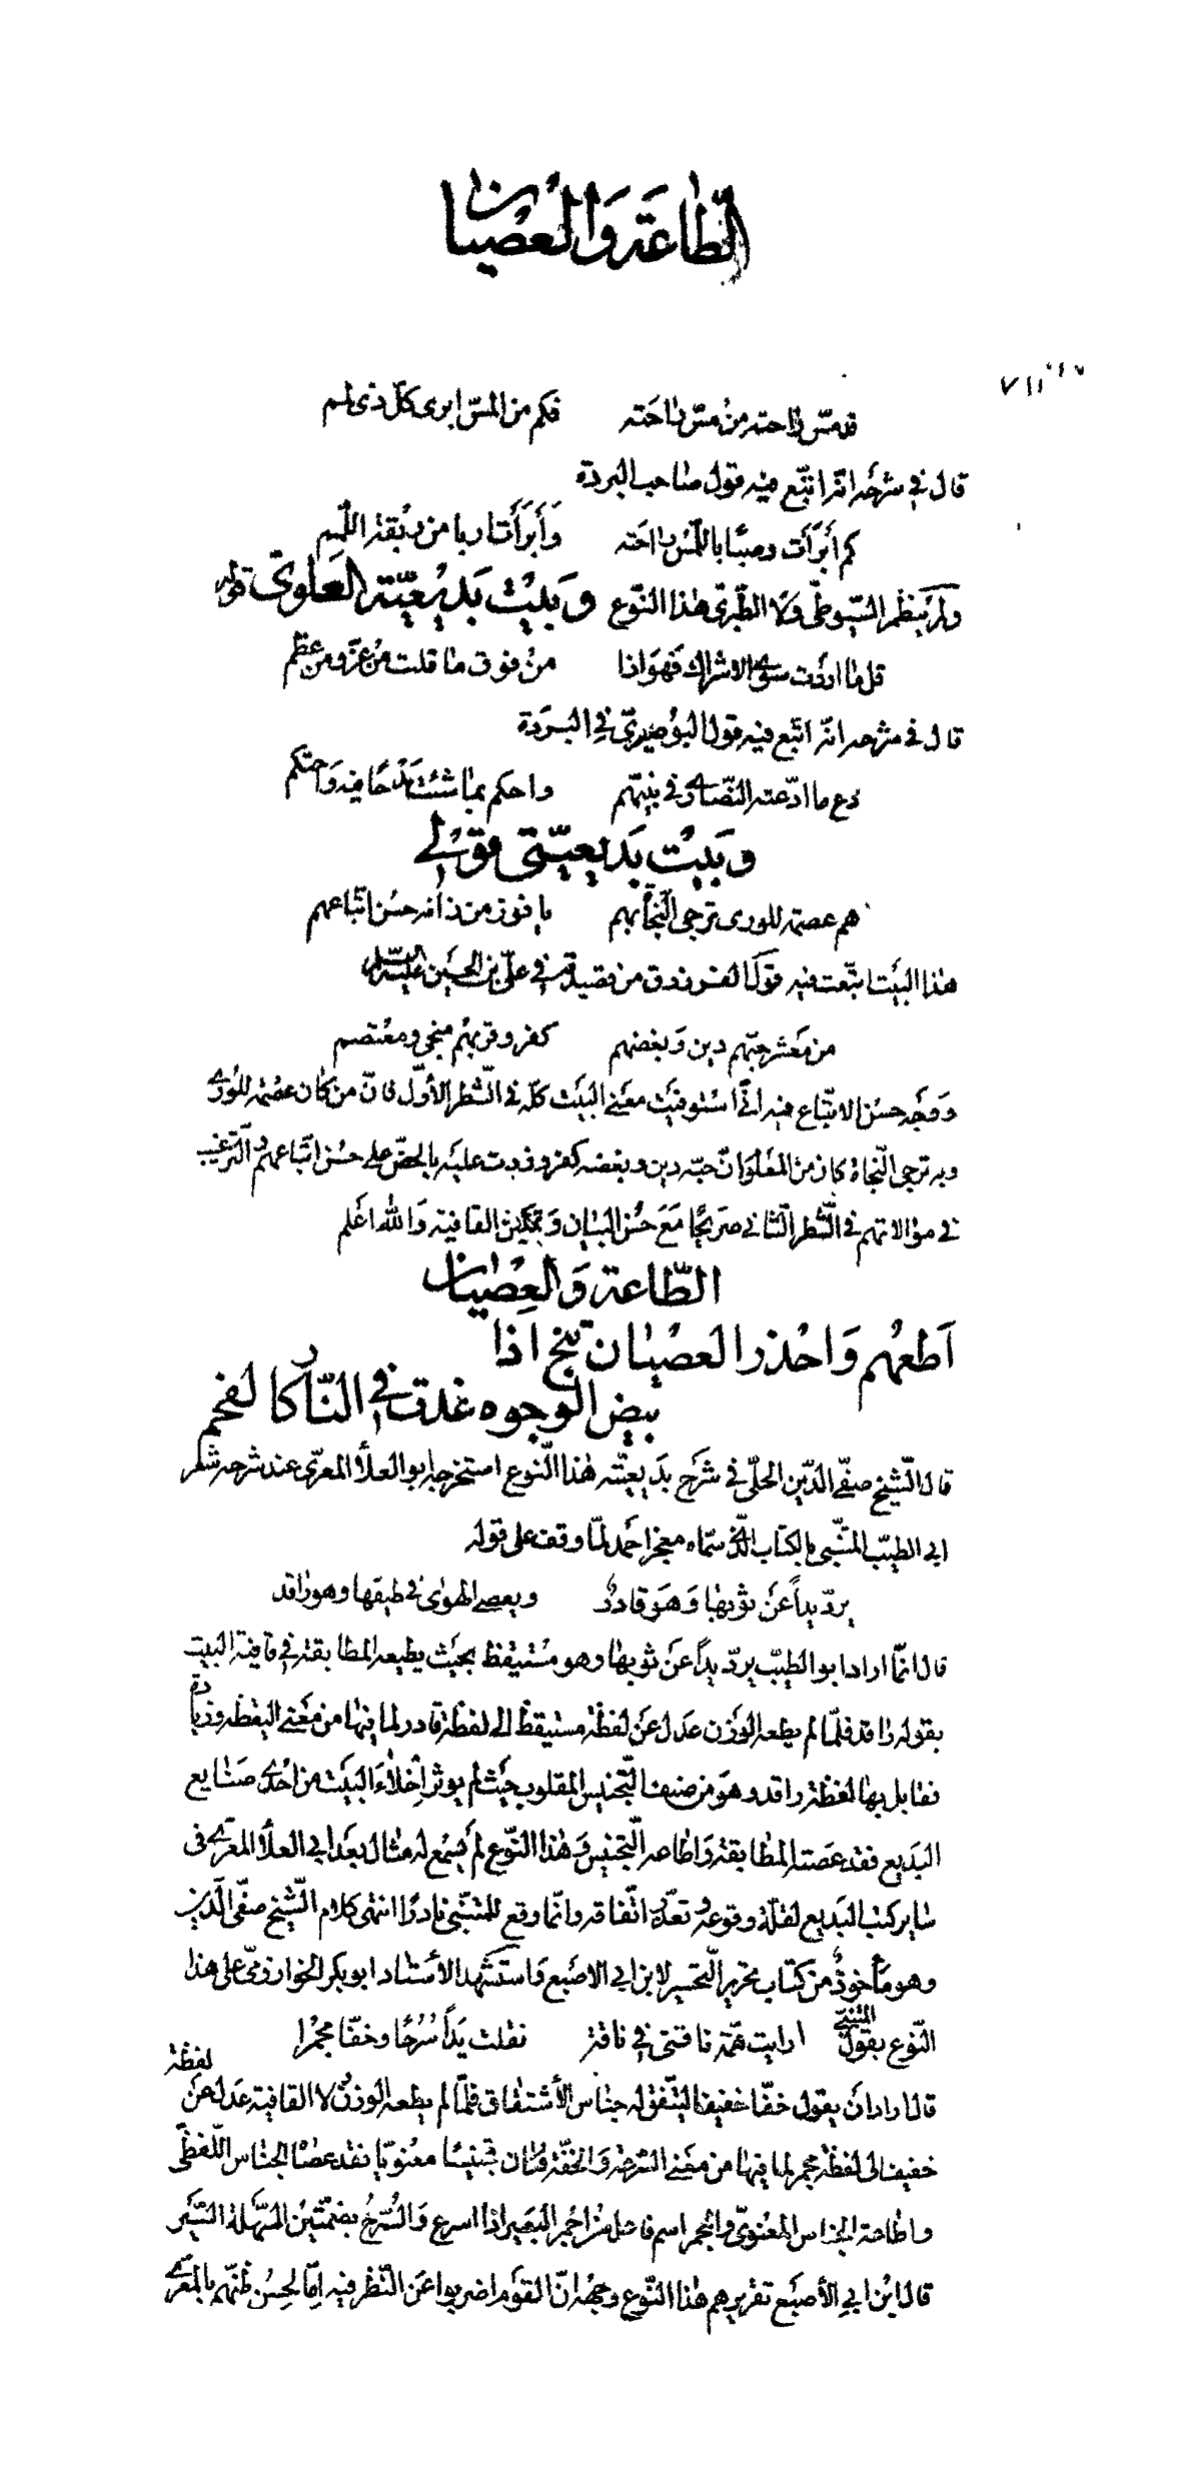 الطاعة والعصيان
٧١١
قد مسّ راحته من مسّ راحته فكم من المسّ ابرى كلّ ذى لمم
قال في شرحه انّه اتبع فيه قول صاحب البردة
كم أبرأت وصبًا باللمس راحته وَأبرَأَت اربا من ربقة اللمم
ولم ينظم السّيوطى ولا الطبرى هذا النّوع وَبَيْت بَديعيّة العلوىّ قوله
قل ما اردت سوى الاشراك فهو اذا من فوق ما قلت من عزّ ومن عظم
قال في شرحه انّه اتبع فيه قول البوُصيرىّ في البردة
دع ما ادّعته النّصارى في نبيّهم واحكم بما شئت مَدْحًا فيه وَاحتكم
وبَيت بَديعيّتى قولى
هم عصمة للورى ترجى النّجا بهم يا فوز من زانه حسن اتّباعهم
هذا البَيت اتبّعت فيه قول الفرزدق من قصيدته في علىّ بن الحسَين عليه السّلام
من مَعشر حبّهم دين وَبغضهم كفر وقربهُم منجى ومعْتصم
وَوَجه حسْن الاتّباع فيه انّى اسْتوفيت معنى البَيت كلّه في الشّطر الأوّل فانّ من كان عصْمة للوُرى
وبه ترجى النّجاة كان من المعْلوم انّ حبّه دين وبغضه كفر وزدت عليَه بالحضّ على حسْن اتّباعهم والترغيب
في موالاتهم في الشّطر الثّاني صريحًا مَعَ حُسْن البيَان وَتمكين القافية وَالله اعَلم
الطّاعة وَالعِصْيان
اَطعهُم وَاحْذر العصْيان تنج اذا
بيض الوجوه غدت في النّار كالفحم
قال الشّيخ صفّى الدّين الحلّى في شرَح بَديعيّته هٰذا النّوع استخرجه ابو العلأ المعرىّ عند شرحه شعر
ابي الطيّب المتنبّى بالكتاب الذّى سمّاه معجز احمَد لمّا وقف على قوله
يردّ يداً عَن ثوبها وَهوَ قادرٌ ويعصى الهوٰى في طيفها وهو راقد
قال انمّا اراد ابو الطيّب يردّ يداً عَن ثوبها وهو مسْتيقظ بحَيث يطيعه المطابقة في قافية البيت
بقوله راقد فلمّا لم يطعه الوَزن عدل عَن لفظة مستيقظ الى لفظة قادر لما فيها من معنى اليقظة وزيادة
فقابل بها لفظة راقد وهوَ من صنف التجنيس المقلوب حيَث لم يوثر اِخلاء البَيت من احْدى صَنايع
البَديع فقد عصته المطابقة وَاطاعه التجنيس وَهذا النّوع لم يُسْمع له مثال بعَد ابي العلأ المعرى فى
سَاير كتب البَديع لقلّة وقوعه وتعذّر اتّفاقه وانّما وقع للمتنبّى نادرًا انتهى كلام الشّيخ صفّى الدّين
وهو مأخوذٌ من كتاب تحرير التّحبير لابن ابي الاصبَع وَاستشهد الأستاد ابو بكر الخوارزمىّ على هذا
النّوع بقول المتنبّى ارايت همّة ناقتى في ناقة نقلت يَداً سُرُحًا وخفّا مجمْرا
قال اراد انَ يقول خفّا خفيفا ليتّفق له جناس الأشتقاق فلمّا لم يطعه الوزن ولا القافية عَدل عَن لفظة
خفيف الى لفظة مجمر لما فيها من معْنى السّرعة وَالخفّة فكان تجنيسًا معنويّا فقد عصٰا الجناس اللّفظّى
واطاعة الجناس المعْنوىّ والمجمر اسم فاعل من اجمر البَعير اذا اسرع وَالسُّرحُ بضمّتين السّهلة السّير
قال ابن ابي الأصبَع تقريرهم هٰذا النّوع وجهْه انّ القوَم اضربوا عَن النّظر فيه اِمّا لحِسْن ظنّهم بالمعرّى